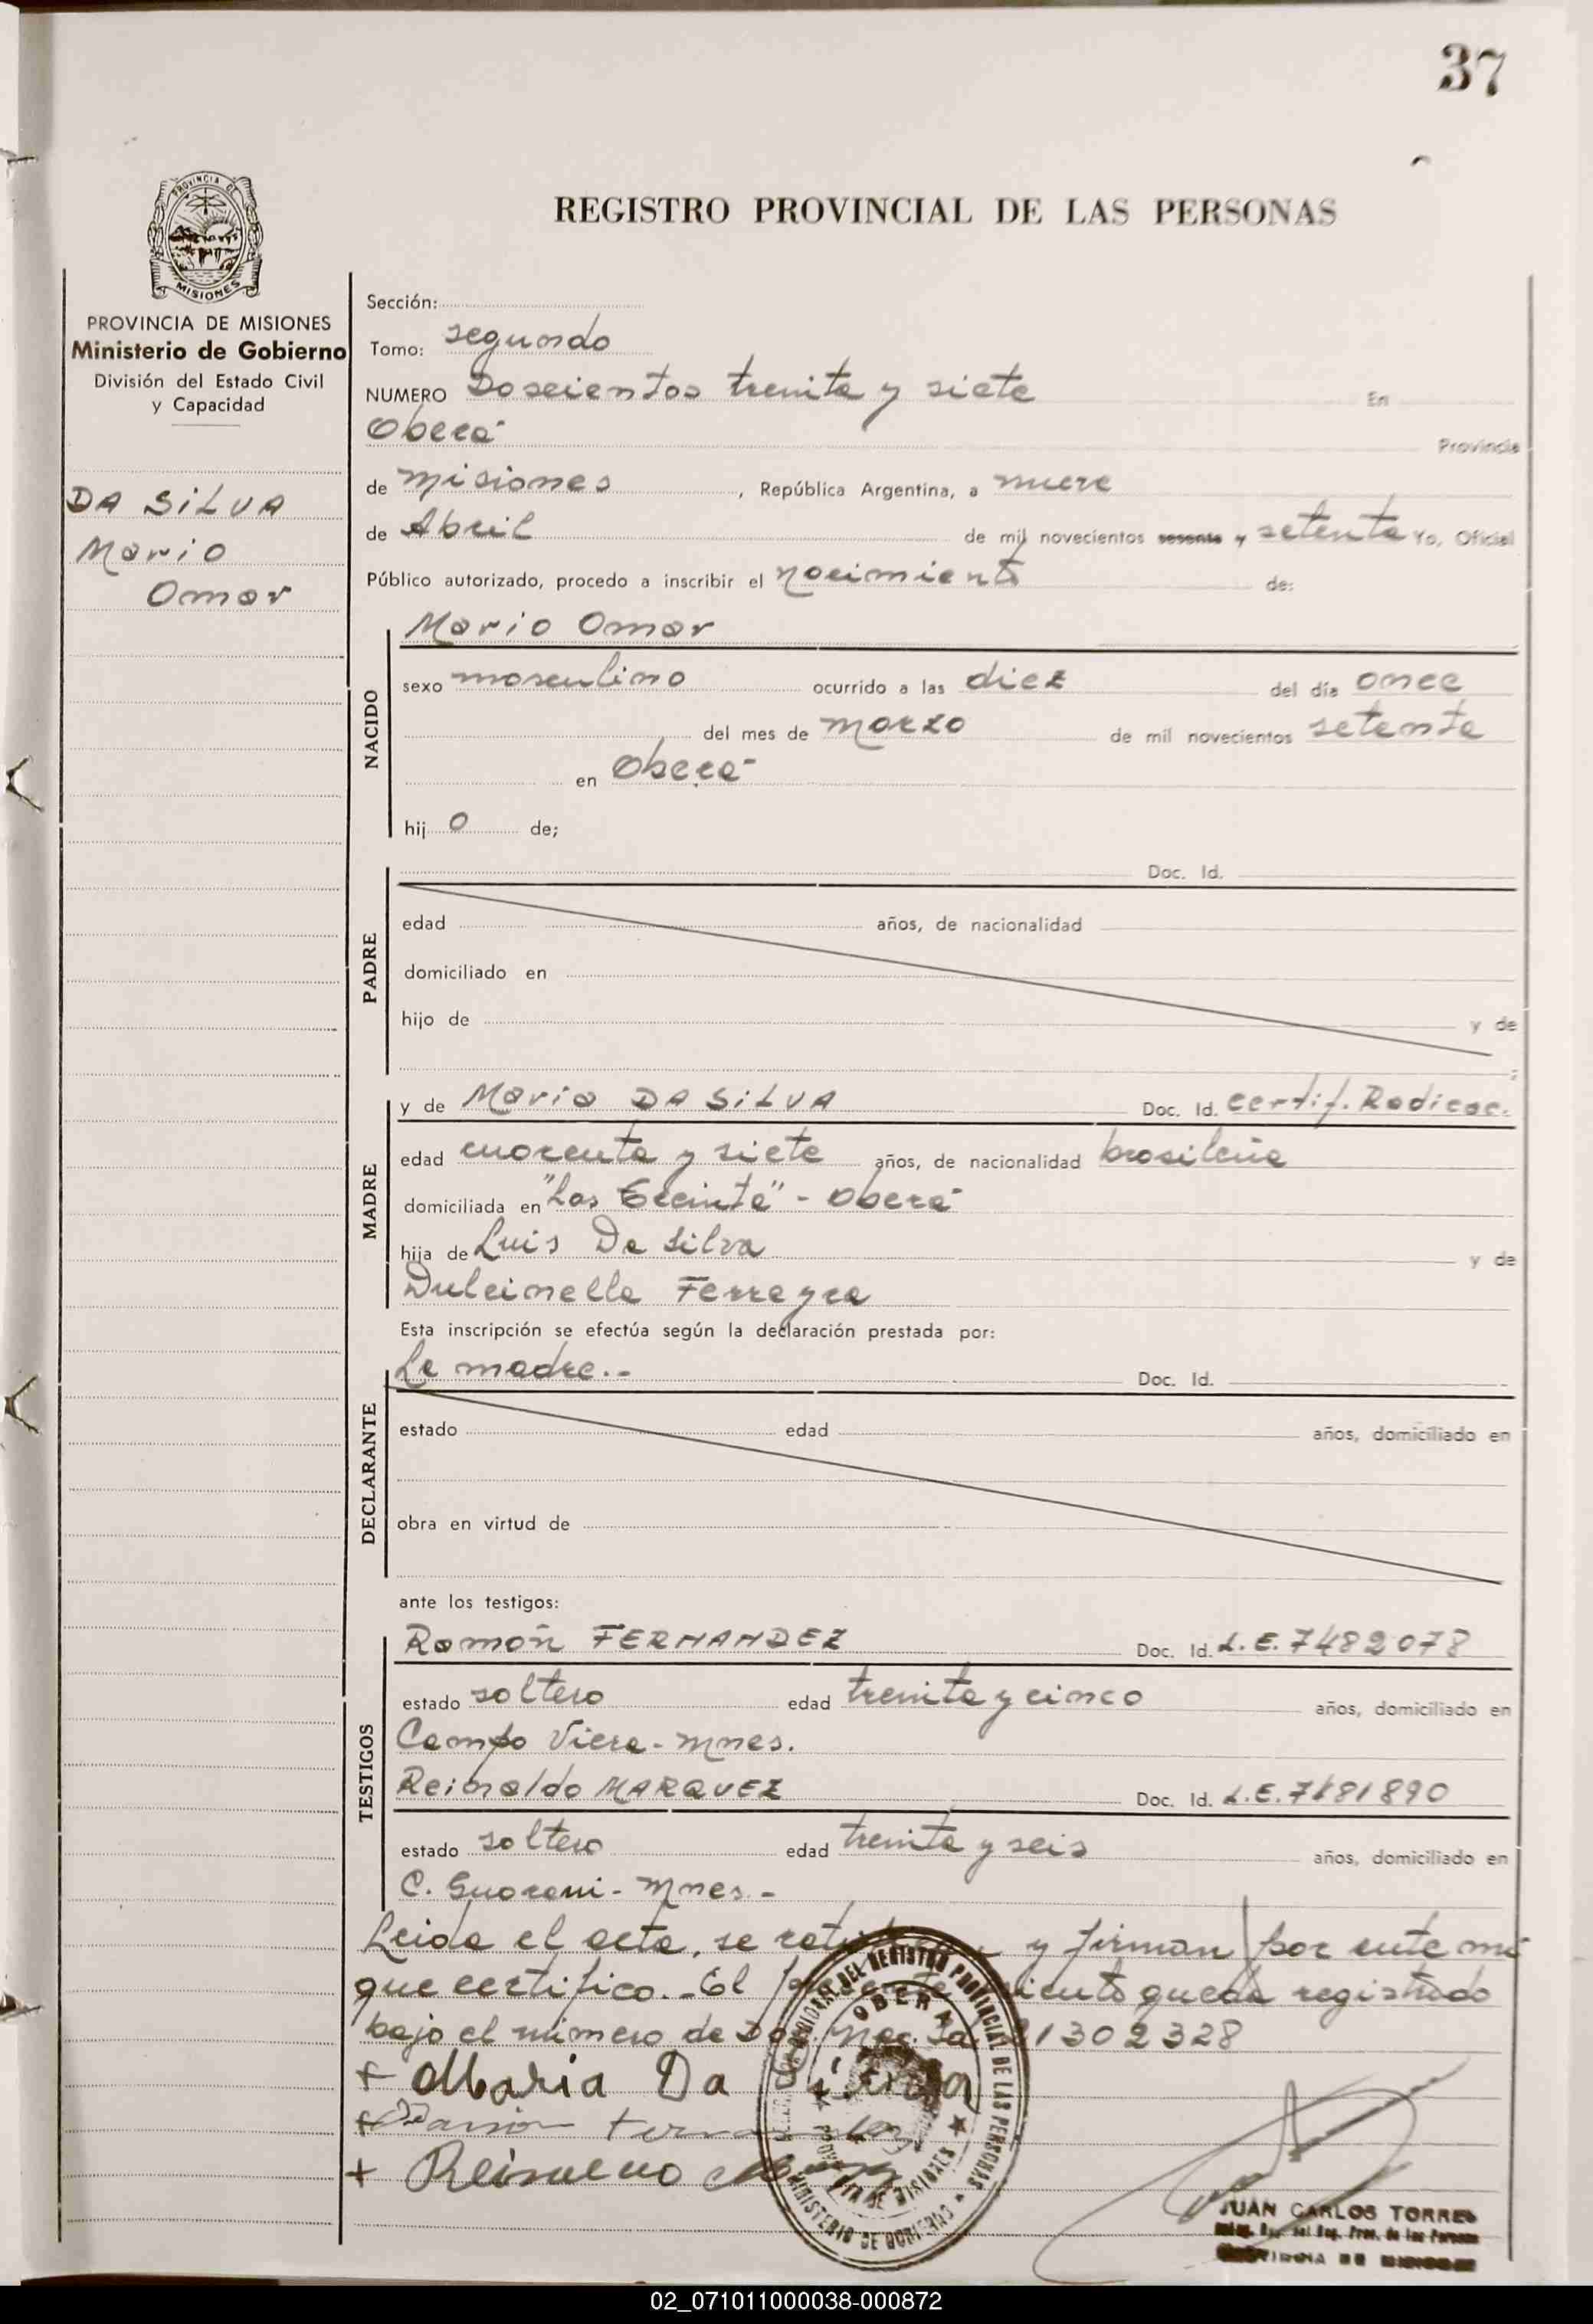 37
PROVINCIA DE
MISIONES
REGISTRO PROVINCIAL DE LAS PERSONAS
PROVINCIA DE MISIONES
Ministerio de Gobierno
División del Estado Civil
y Capacidad
DA SILVA
Mario
Omar
Sección:
Tomo: segundo
NUMERO Doscientos treinta y siete En
Oberá Provincia
de Misiones, República Argentina, a nueve
de Abril de mil novecientos sesenta y setenta Yo, Oficial
Público autorizado, procedo a inscribir el nacimiento de:
NACIDO
Mario Omar
sexo masculino ocurrido a las diez del día once
del mes de marzo de mil novecientos setenta
en Oberá
hij o de;
PADRE
Doc. Id.
edad años, de nacionalidad
domiciliado en
hijo de y de
;
MADRE
y de Maria DA SILVA Doc. Id. certif. Radicac.
edad cuarenta y siete años, de nacionalidad brasileña
domiciliada en "Las Treinta" - Oberá
hija de Luis Da Silva y de
Dulcinella Ferreyra
Esta inscripción se efectúa según la declaración prestada por:
DECLARANTE
La madre.- Doc. Id.
estado edad años, domiciliado en
obra en virtud de
ante los testigos:
TESTIGOS
Ramón FERNANDEZ Doc. Id. L.E. 7482078
estado soltero edad treinta y cinco años, domiciliado en
Campo Viera - Mnes.
Reinaldo MARQUEZ Doc. Id. L.E.
estado soltero edad treinta y seis años, domiciliado en
C. Guarani - Mnes -
Leida el acta, se y firman por ante mi
que certifico.- El queda registrado
bajo el número de Doc. Nac. Id. 21302328
+ Maria Da Silva
+ Ramón Fernandez
+
DEL REGISTRO PROVINCIAL DE LAS PERSONAS
OBERA
PROVINCIA DE MISIONES
MINISTERIO DE GOBIERNO
JUAN CARLOS TORRES
del Reg. Prov. de las Personas
PROVINCIA DE MISIONES
02_071011000038-000872